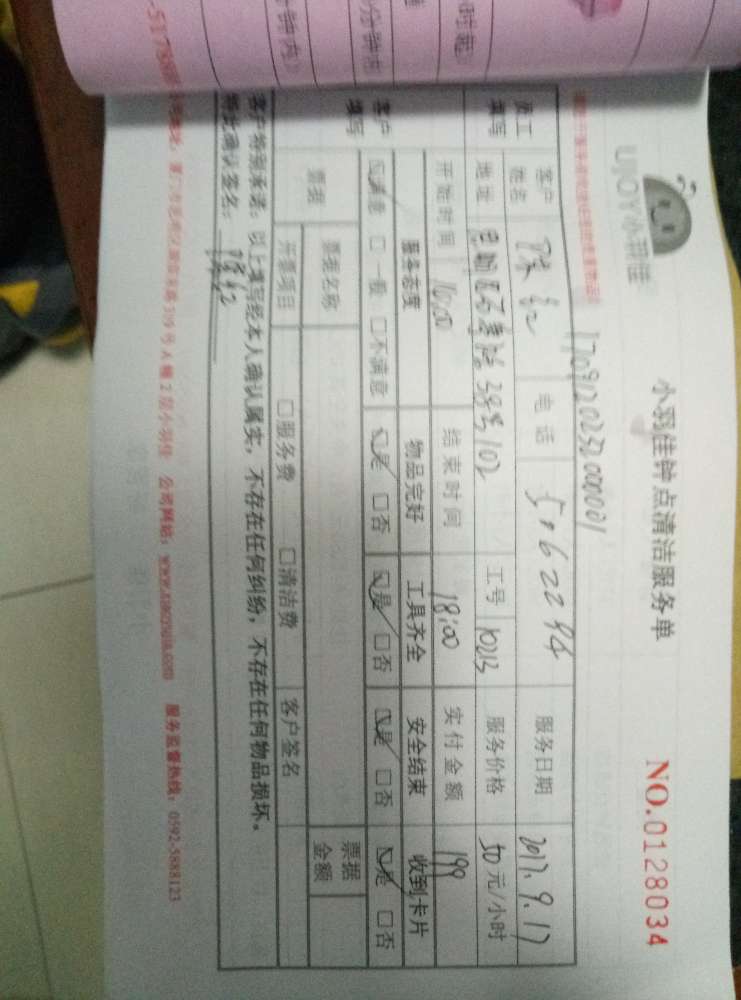 UJOY小羽佳
小羽佳钟点清洁服务单
NO.0128034
员工填写
客户姓名 陈红 电话 5062294 服务日期 2017.9.17
地址 38号102 工号 10213 服务价格 50元/小时
开始时间 10:00 结束时间 18:00 实付金额 199
客户填写
服务态度 物品完好 工具齐全 安全结束 收到卡片
☑满意 □一般 □不满意 ☑是 □否 ☑是 □否 ☑是 □否 ☑是 □否
票据 票据名称 票据金额
开票项目 □服务费 □清洁费 客户签名
客户特别承诺：以上填写经本人确认属实，不存在任何纠纷，不存在任何物品损坏。
特此确认签名：陈红
319号A幢2层小羽佳 公司网站：www.xiaoyujia.com 服务监督热线：0592-5888123